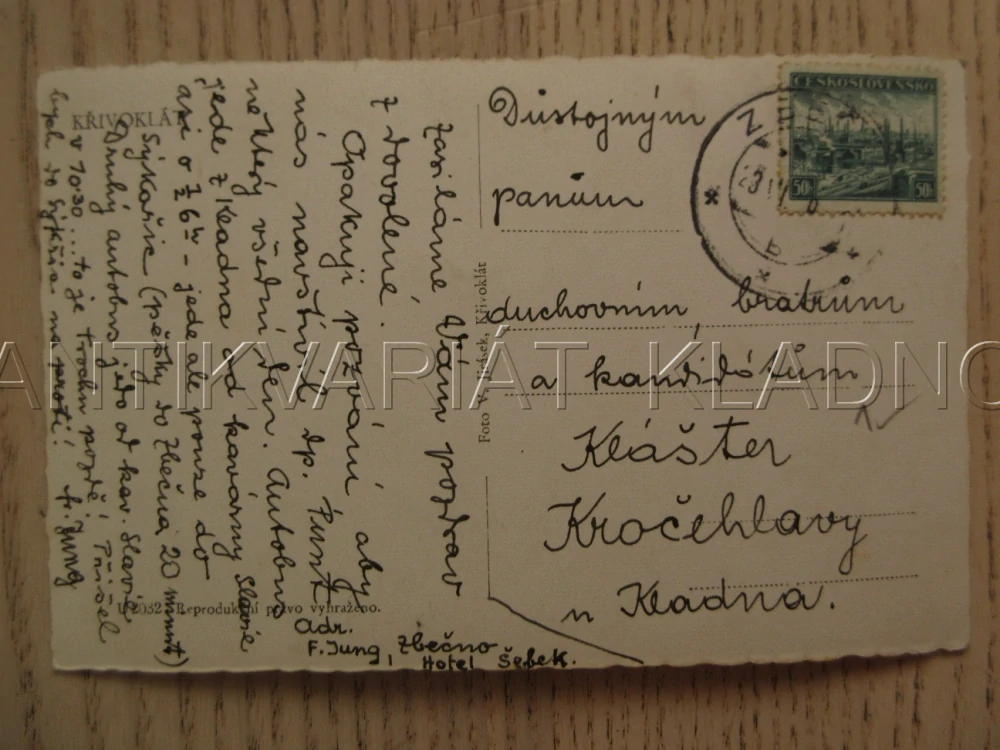 KŘIVOKLÁT
Zasíláme Vám pozdrav
z dovolené.
Opakuji pozvání aby
nás navštívil dp. Punt
některý všední den. Autobus
jede z Kladna od kavárny Slavie
asi o ½ 6 - jede ale pouze do
Sýkořic (pěšky do Zbečna 20 minut)
Druhý autobus jede od kav. Slavie
v 10:30... to je trochu pozdě! Přišel
bych do Sýkořic na proti! Fr. Jung
Adr.
F. Jung, Zbečno
Hotel Šebek.
U 2032 Reprodukční právo vyhraženo.
Foto V. Jišek, Křivoklát
ČESKOSLOVENSKO
50h 50h
Důstojným
panům
duchovním bratrům
a kandidátům
Klášter
Kročehlavy
u Kladna.
ANTIKVARIÁT KLADNO